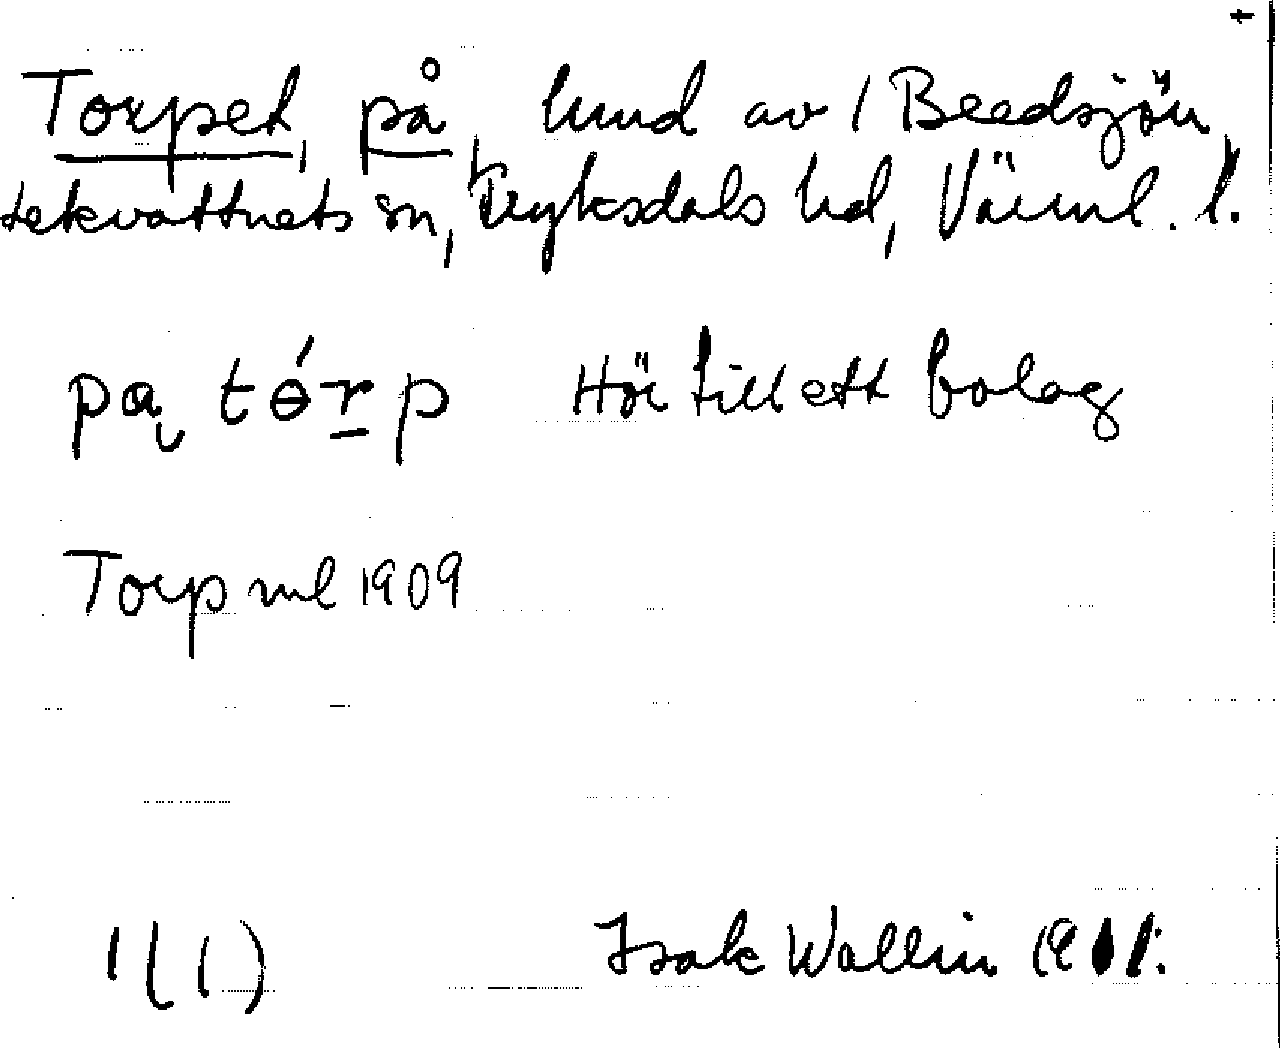 Torpet, på, hmd av 1 Bredsjön,
Lekvattnets sn, Fryksdals hd, Värml. l.
pą tórp Hör till ett bolag
Torp ml 1909
1 (1) Isak Wallin